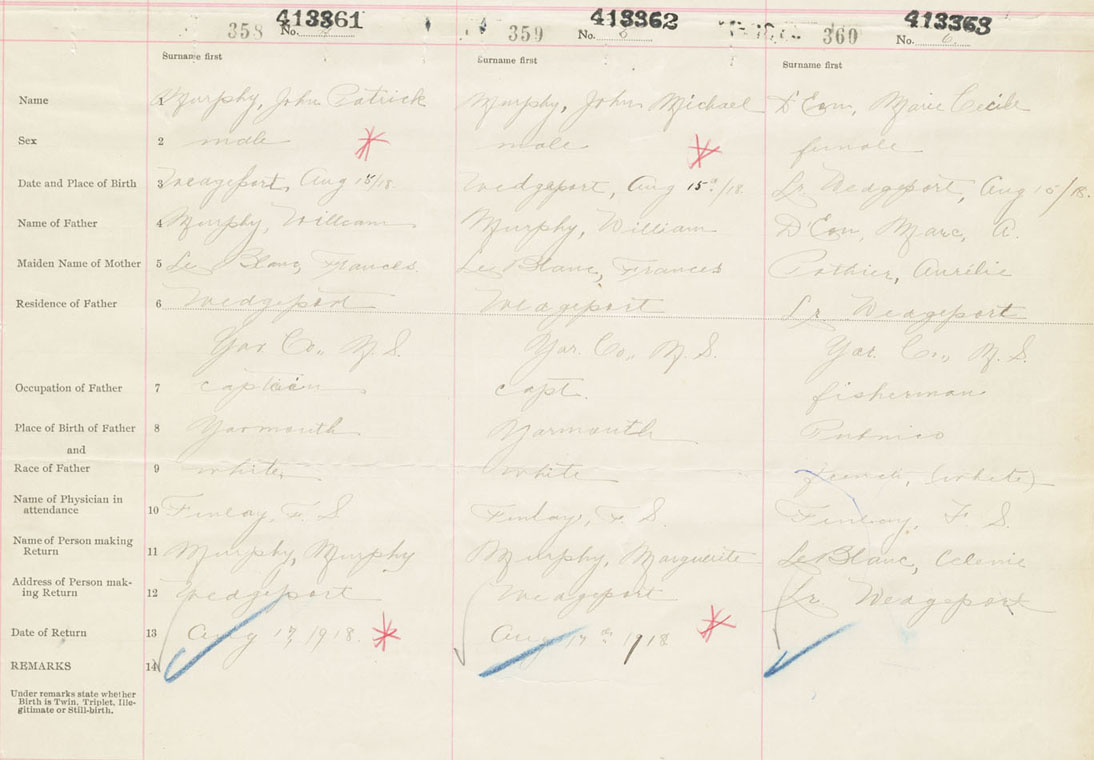 413361 413362 413363
358 No. 359 No. 360 No. 6
Surname first Surname first Surname first
Name 1 Murphy, John Patrick Murphy, John Michael D'Eon, Marie Cecile
Sex 2 male male female
Date and Place of Birth 3 Wedgeport, Aug 15/18 Wedgeport, Aug 15th/18 Lr Wedgeport, Aug 15/18.
Name of Father 4 Murphy, William Murphy, William D'Eon, Marc, A.
Maiden Name of Mother 5 Le Blanc, Frances Le Blanc, Frances Pothier, Aurélie
Residence of Father 6 Wedgeport Wedgeport Lr Wedgeport
Yar Co., N.S. Yar. Co., N.S. Yar. Co., N.S.
Occupation of Father 7 captain capt. fisherman
Place of Birth of Father 8 Yarmouth Yarmouth Pubnico
and
Race of Father 9 white white french, (white)
Name of Physician in
attendance 10 Finlay, F. S Finlay, F. S. Finlay, F. S.
Name of Person making
Return 11 Murphy, Murphy Murphy, Marguerite LeBlanc,
Address of Person mak-
ing Return 12 Wedgeport Wedgeport Lr Wedgeport
Date of Return 13 Aug 17, 1918. Aug 17th 1918
REMARKS 14
Under remarks state whether
Birth is Twin, Triplet, Ille-
gitimate or Still-birth.